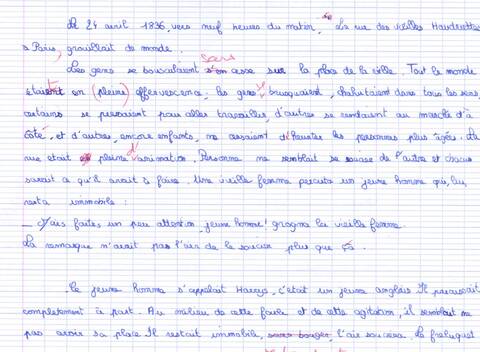 Le 24 avril 1836, vers neuf heures du matin, la rue des vieilles Haudriettes
à Paris, grouillait de monde.
sans
Les gens se bousculaient s'en cesse sur la place de la ville. Tout le monde
étaient en (pleine) effervescence, les gens braquaient, chahutaient dans tous les sens,
certains se pressaient pour aller travailler, d'autres se rendaient au marché d'à
côté, et d'autres, encore enfants, ne cessaient d'heurter les personnes plus âgées. La
rue etait pleine d'animation. Personne ne semblait se soucier de l'autre et chacun
savait ce qu'il avait à faire. Une vieille femme percuta un jeune homme qui, lui,
resta immobile :
- Fais faites, un peu attention, jeune homme ! grogna la vieille femme.
La remarque n'avait pas l'air de le soucier plus que ça.
Le jeune homme s'appelait Harrys, c'était un jeune anglais. Il paraissait
complètement à part. Au milieu de cette foule et de cette agitation, il semblait ne
pas avoir sa place. Il restait immobile, sans bouger, l'air soucieux. Le freluquet